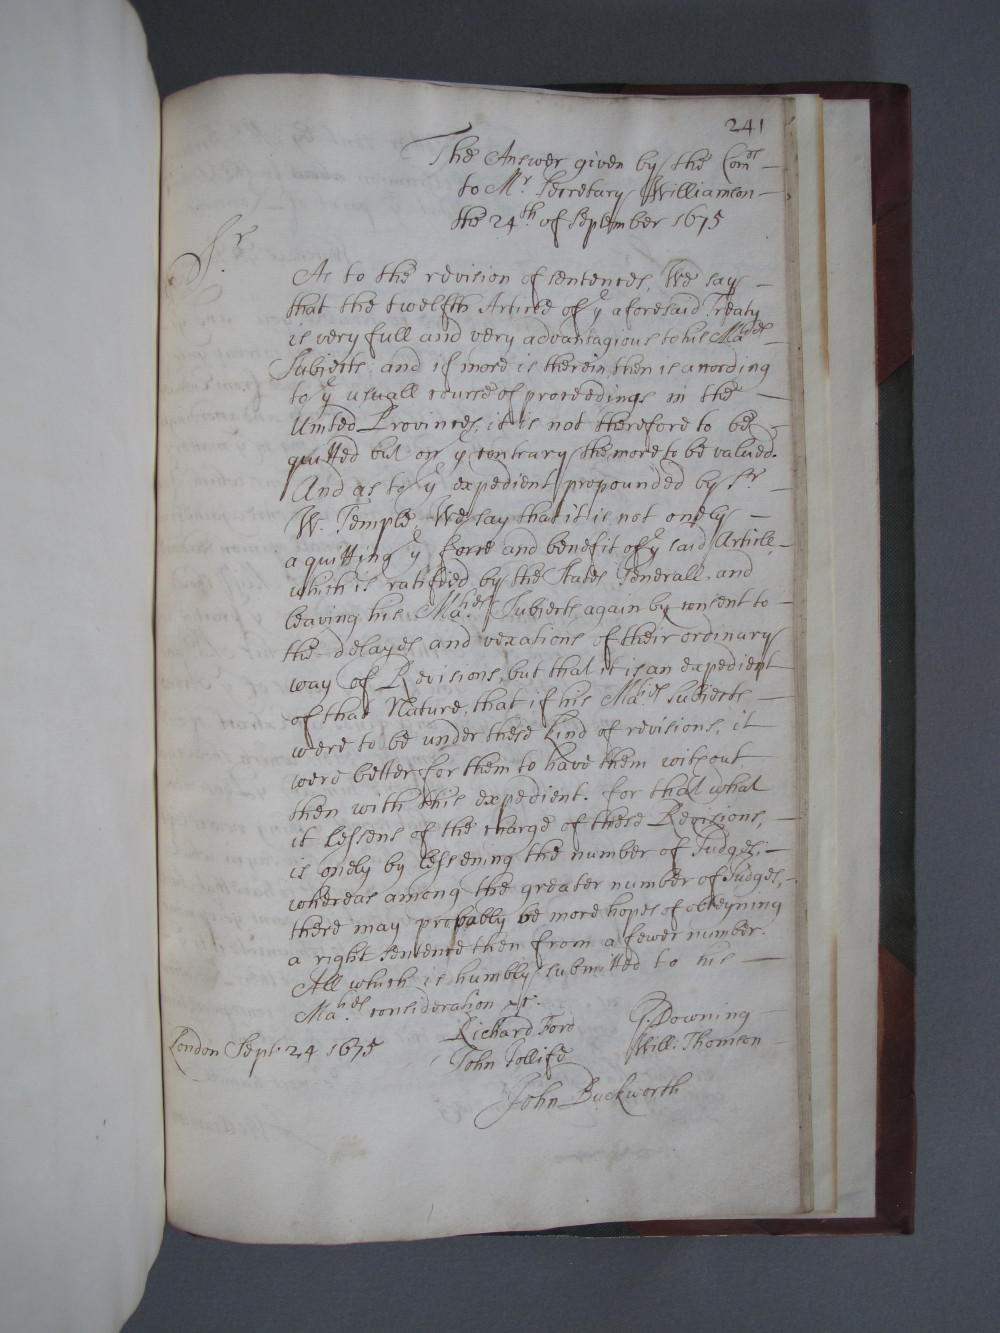 241
The Answer given by the Com^rs
to M^r Secretary Williamson
the 24^th of September 1675
S^r
As to the revision of sentences, We say
that the twelfth Article of y^e aforesaid Treaty
is very full and very advantagious to his Ma^ties
Subjects, and if more is therein then is according
to y^e usuall course of proceedings in the
United Provinces, it is not therefore to be
quitted but on y^e contrary the more to be valued.
And as to y^e expedient propounded by S^r
W. Temple, We say that it is not onely
a quitting y^e force and benefit of y^e said Article,
which is ratifyed by the States Generall, and
leaving his Ma^ties Subjects again by consent to
the delayes and vexations of their ordinary
way of Revisions, but that it is an expedient
of that Nature, that if his Ma^ties Subjects
were to be under these kind of revisions, it
were better for them to have them without
then with this expedient. for that what
it lessens of the charge of these Revisions,
is onely by lessening the number of Judges;
whereas among the greater number of Judges,
there may probably be more hopes of obteyning
a right sentence then from a fewer number.
All which is humbly submitted to his
Ma^ties consideration &c.
Richard Ford G. Downing
London Sept. 24 1675 John Jollife Will: Thomson
John Buckworth